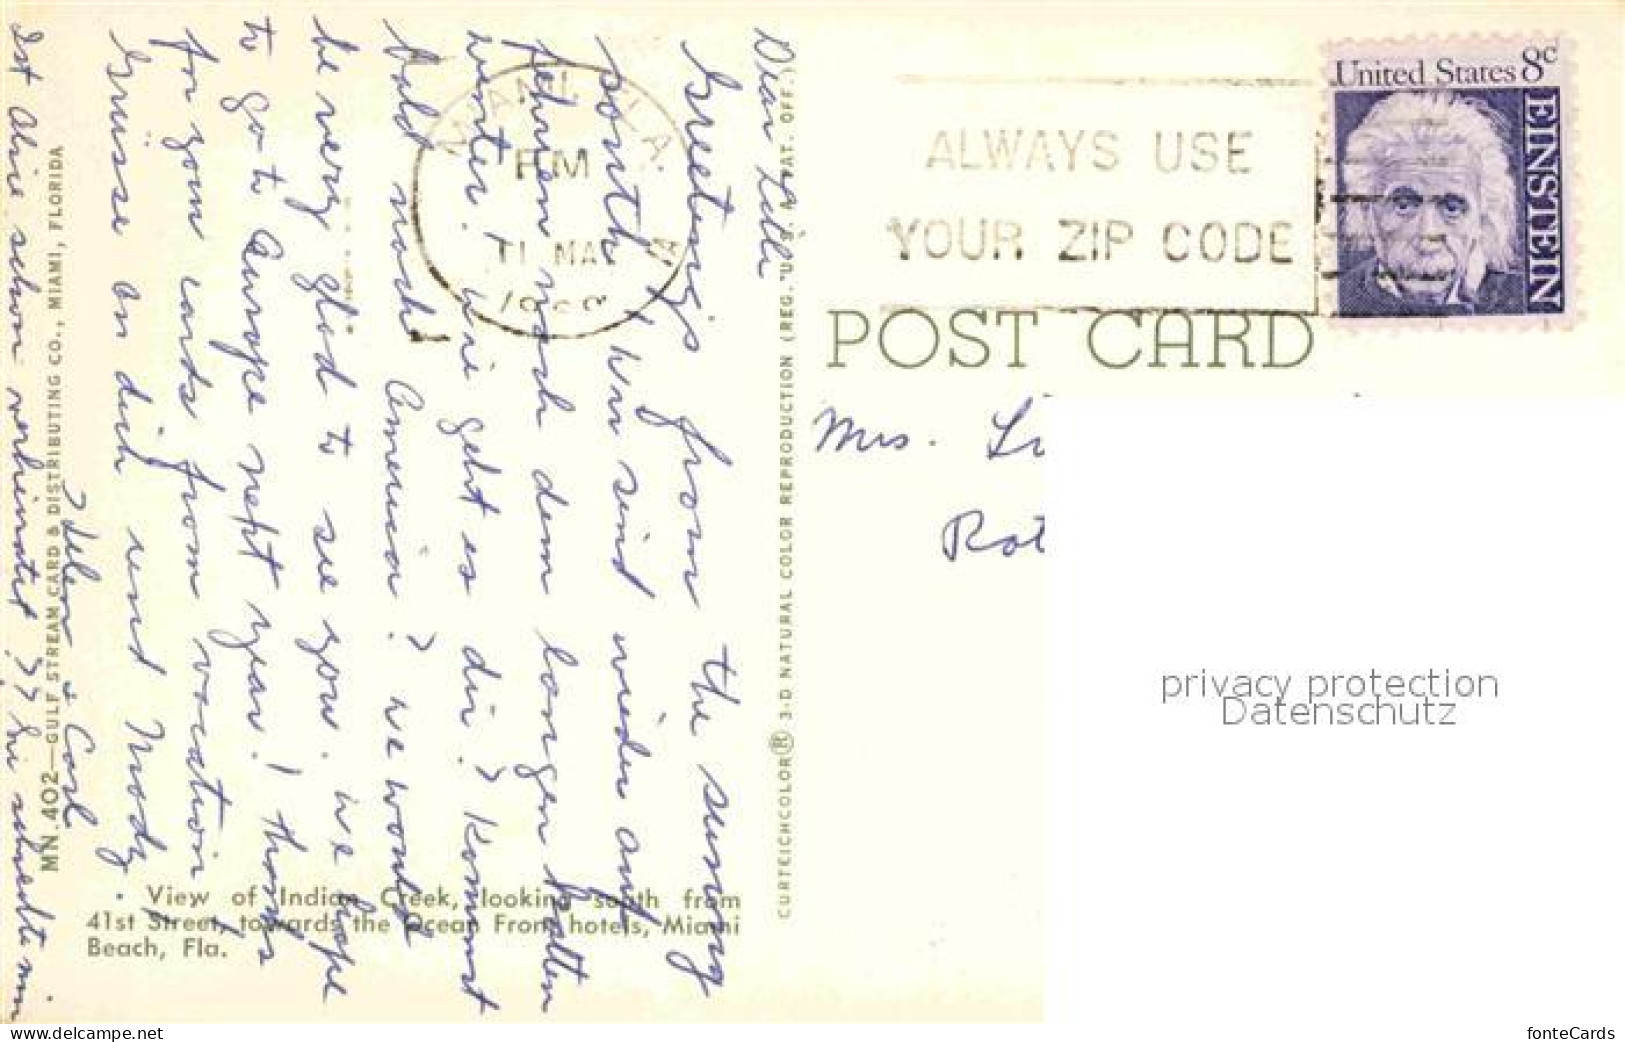 Dear Lilli
Greetings from the sunny
south! Wir sind wieder auf
fehren nach dem langen kalten
wenter. Wie geht es dir? Kommst
bald nach America? We would
be very glad to see you. We hope
to go to Europe next year! Thanks
for your cards from vacation,
Grüsse an dich und Mody.
Helen & Carl
Ist Alice schon verheiratet?? Sie schreibt mir
View of Indian Creek, looking south from
41st Street, towards the Ocean Front hotels, Miami
Beach, Fla.
MN.402—GULF STREAM CARD & DISTRIBUTING CO., MIAMI, FLORIDA
CURTEICHCOLOR® 3-D NATURAL COLOR REPRODUCTION (REG. U.S.A. PAT. OFF.)
MIAMI, FLA.
PM
11 MAR
ALWAYS USE
YOUR ZIP CODE
United States 8c
EINSTEIN
POST CARD
Mrs. Li
Rot
privacy protection
Datenschutz
delcampe.net
fonteCards